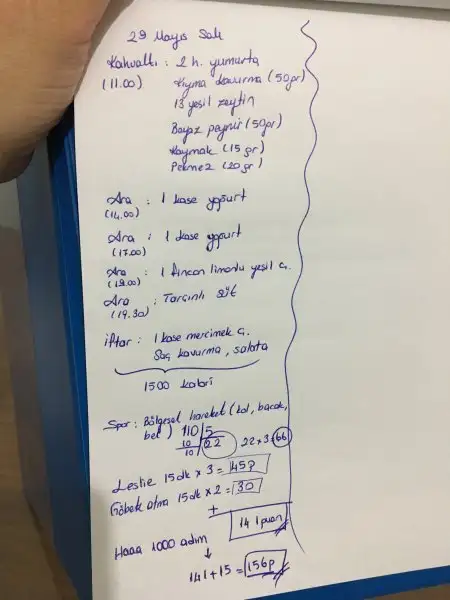 29 Mayıs Salı
Kahvaltı : 2 h. yumurta
(11.00) Kıyma kavurma (50gr)
13 yeşil zeytin
Beyaz peynir (50gr)
Kaymak (15 gr)
Pekmez (20 gr)
Ara : 1 kase yoğurt
(14.00)
Ara : 1 kase yoğurt
(17.00)
Ara : 1 fincan limonlu yeşil ç.
(19.00)
Ara : Tarçınlı süt
(19.30)
iftar : 1 kase mercimek ç.
Saç kavurma, salata
1500 kalori
Spor : Bölgesel hareket (kol, bacak,
bel) 110 5
10 22 22x3=66
10
Leslie 15dk x 3 = 45p
Göbek atma 15dk x 2 = 30
+
141 puan
Haaa 1000 adım
↓
141+15 = 156p